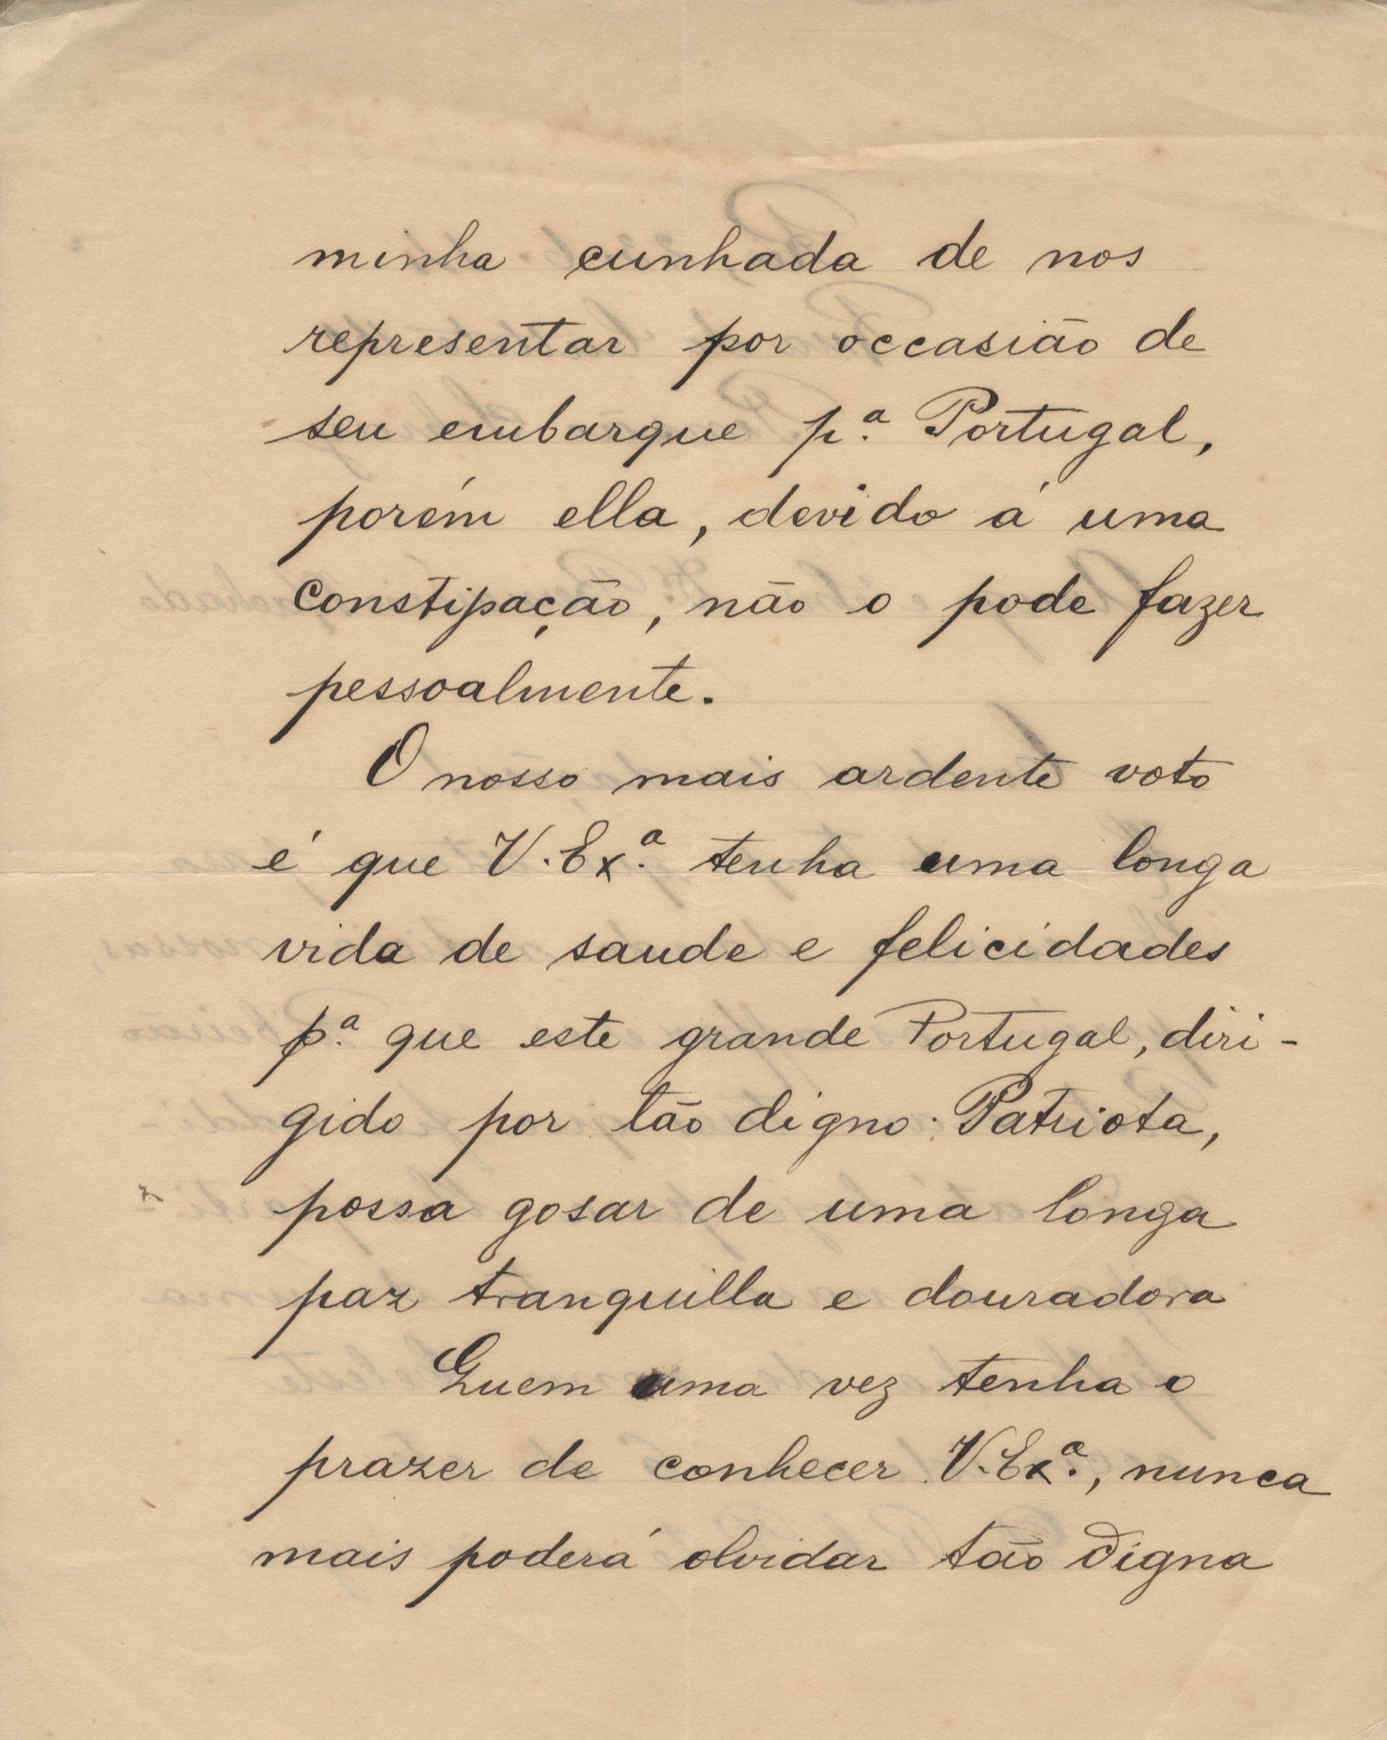 minha cunhada de nos
representar por occasião de
seu embarque p.ª Portugal,
porém ella, devido á uma
constipação, não o pode fazer
pessoalmente.
O nosso mais ardente voto
é que V. Ex.ª tenha uma longa
vida de saude e felicidades
p.ª que este grande Portugal, diri-
gido por tão digno Patriota,
possa gosar de uma longa
paz tranquilla e douradora
Quem uma vez tenha o
prazer de conhecer V. Ex.ª, nunca
mais poderá olvidar tão digna